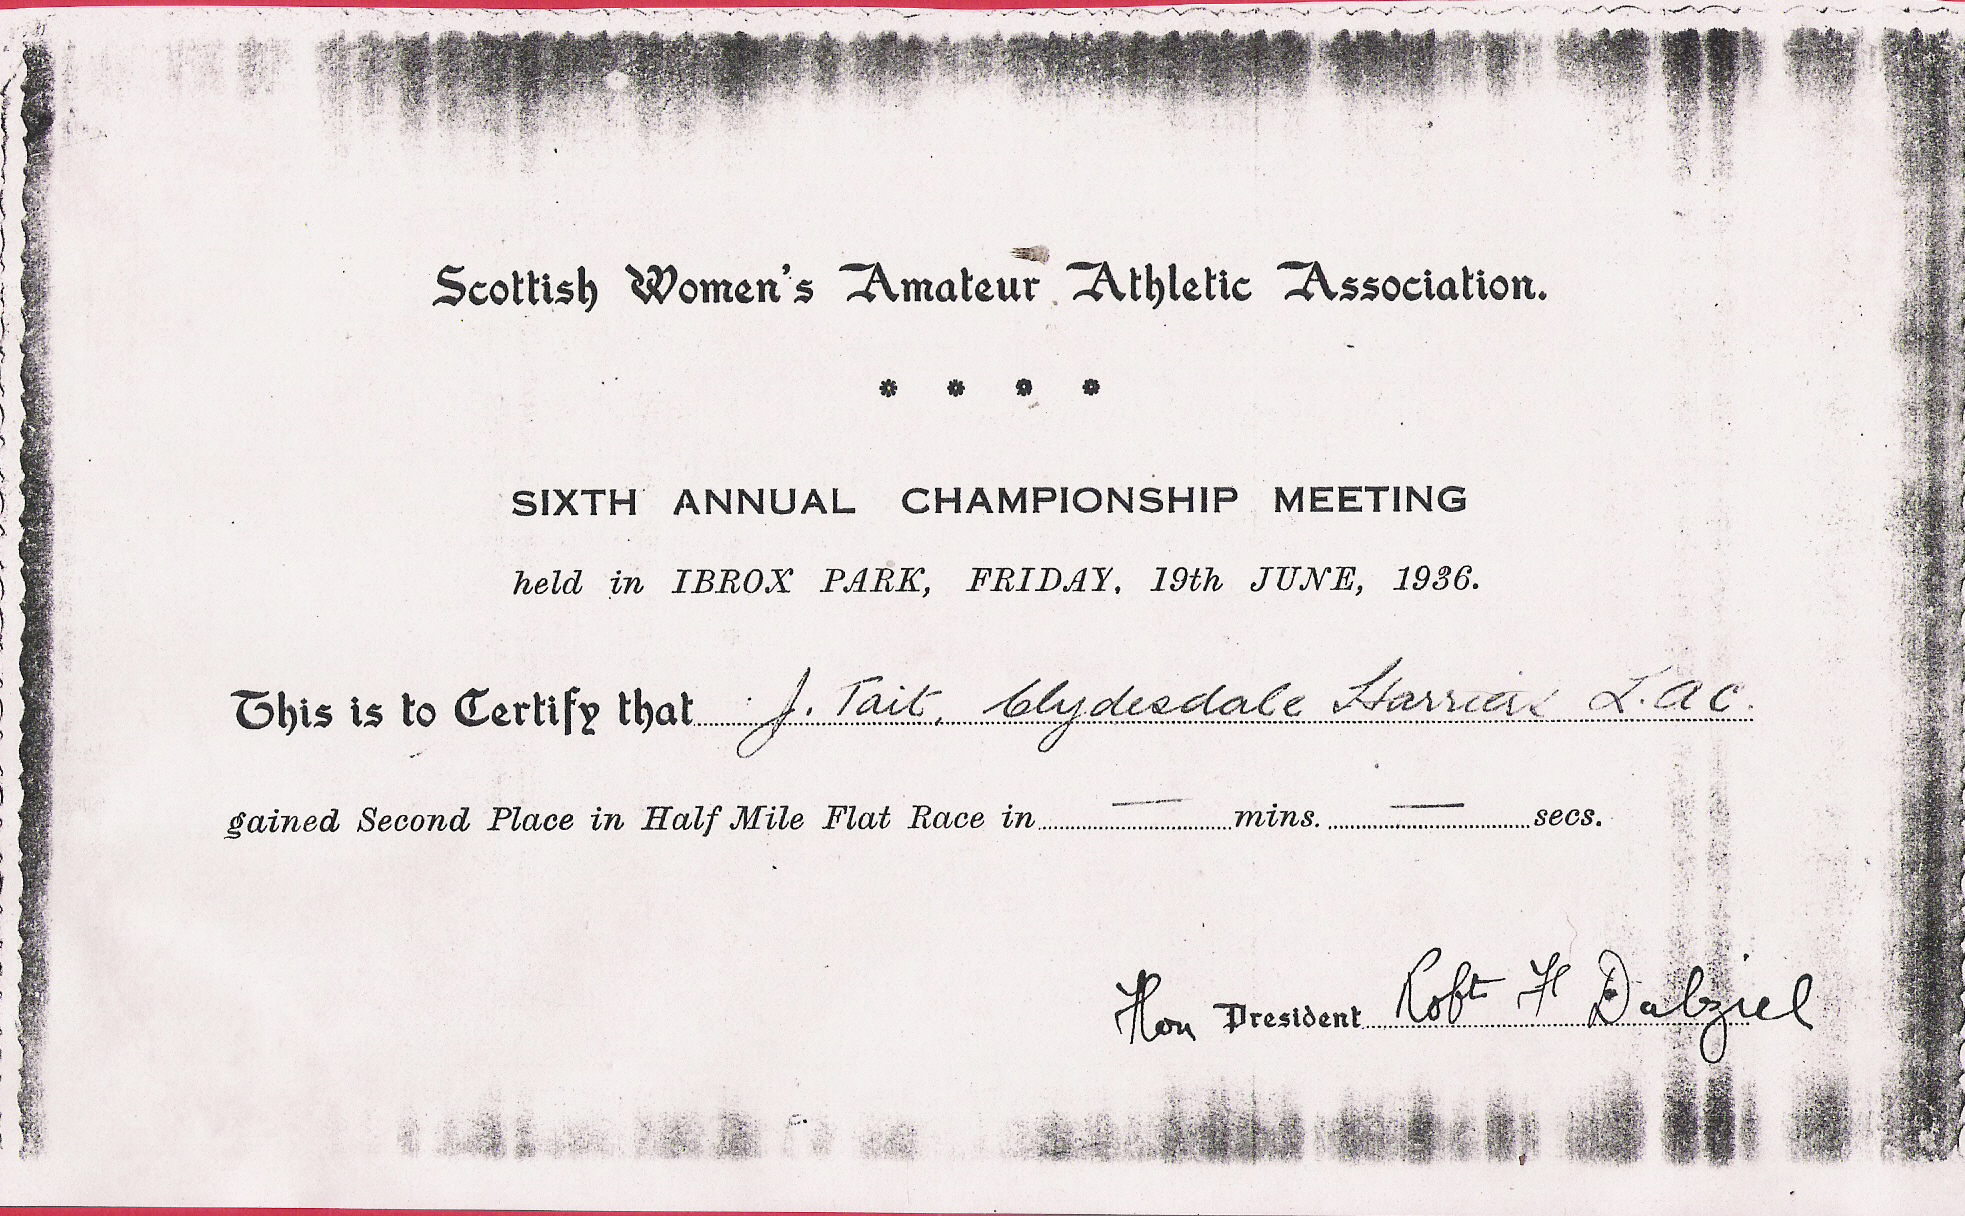 Scottish Women's Amateur Athletic Association.
* * * *
SIXTH ANNUAL CHAMPIONSHIP MEETING
held in IBROX PARK, FRIDAY, 19th JUNE, 1936.
This is to Certify that J. Tait, Clydesdale Harriers L.A.C.
gained Second Place in Half Mile Flat Race in — mins. — secs.
Hon President Robt H Dalziel